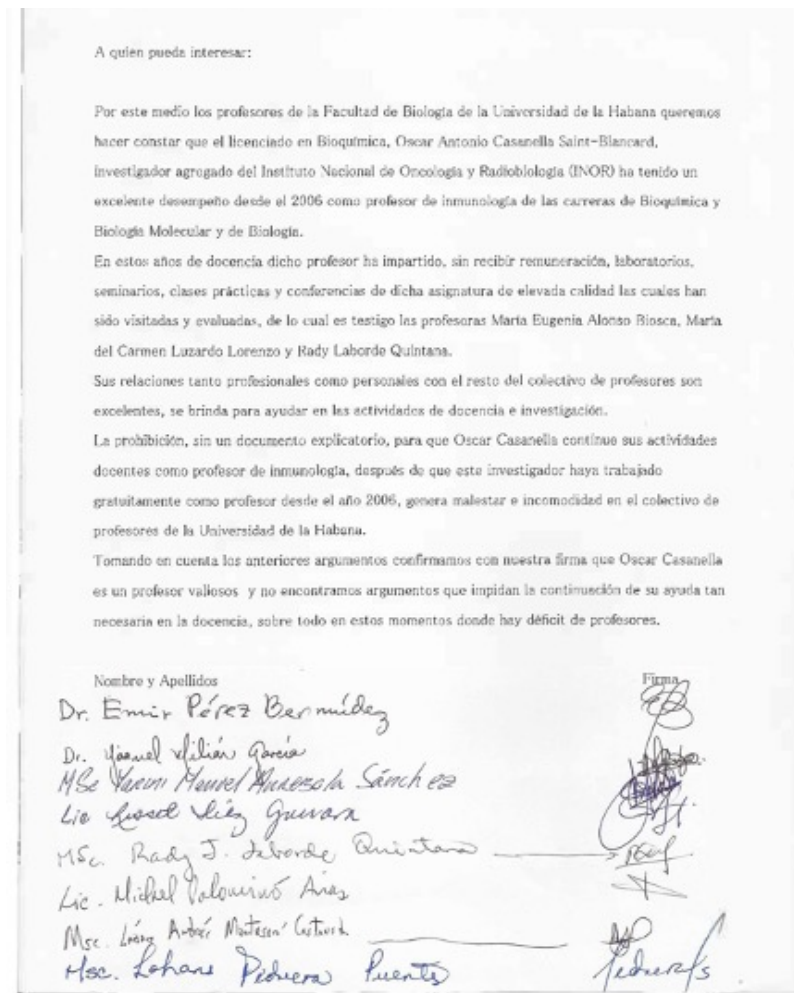 A quien pueda interesar:
Por este medio los profesores de la Facultad de Biología de la Universidad de la Habana queremos
hacer constar que el licenciado en Bioquímica, Oscar Antonio Casanella Saint-Blancard,
investigador agregado del Instituto Nacional de Oncología y Radiobiología (INOR) ha tenido un
excelente desempeño desde el 2006 como profesor de inmunología de las carreras de Bioquímica y
Biología Molecular y de Biología.
En estos años de docencia dicho profesor ha impartido, sin recibir remuneración, laboratorios,
seminarios, clases prácticas y conferencias de dicha asignatura de elevada calidad las cuales han
sido visitadas y evaluadas, de lo cual es testigo las profesoras María Eugenia Alonso Biosca, María
del Carmen Luzardo Lorenzo y Rady Laborde Quintana.
Sus relaciones tanto profesionales como personales con el resto del colectivo de profesores son
excelentes, se brinda para ayudar en las actividades de docencia e investigación.
La prohibición, sin un documento explicatorio, para que Oscar Casanella continue sus actividades
docentes como profesor de inmunología, después de que este investigador haya trabajado
gratuitamente como profesor desde el año 2006, genera malestar e incomodidad en el colectivo de
profesores de la Universidad de la Habana.
Tomando en cuenta los anteriores argumentos confirmamos con nuestra firma que Oscar Casanella
es un profesor valiosos y no encontramos argumentos que impidan la continuación de su ayuda tan
necesaria en la docencia, sobre todo en estos momentos donde hay déficit de profesores.
Nombre y Apellidos Firma
Dr. Emir Pérez Bermúdez
Dr. García
MSc Manuel Sánchez
Lic Guevara
MSc. Rady J. Laborde Quintana
Lic. Michel Palomino Arias
Msc.
Msc. Lohans Pedrera Puentes